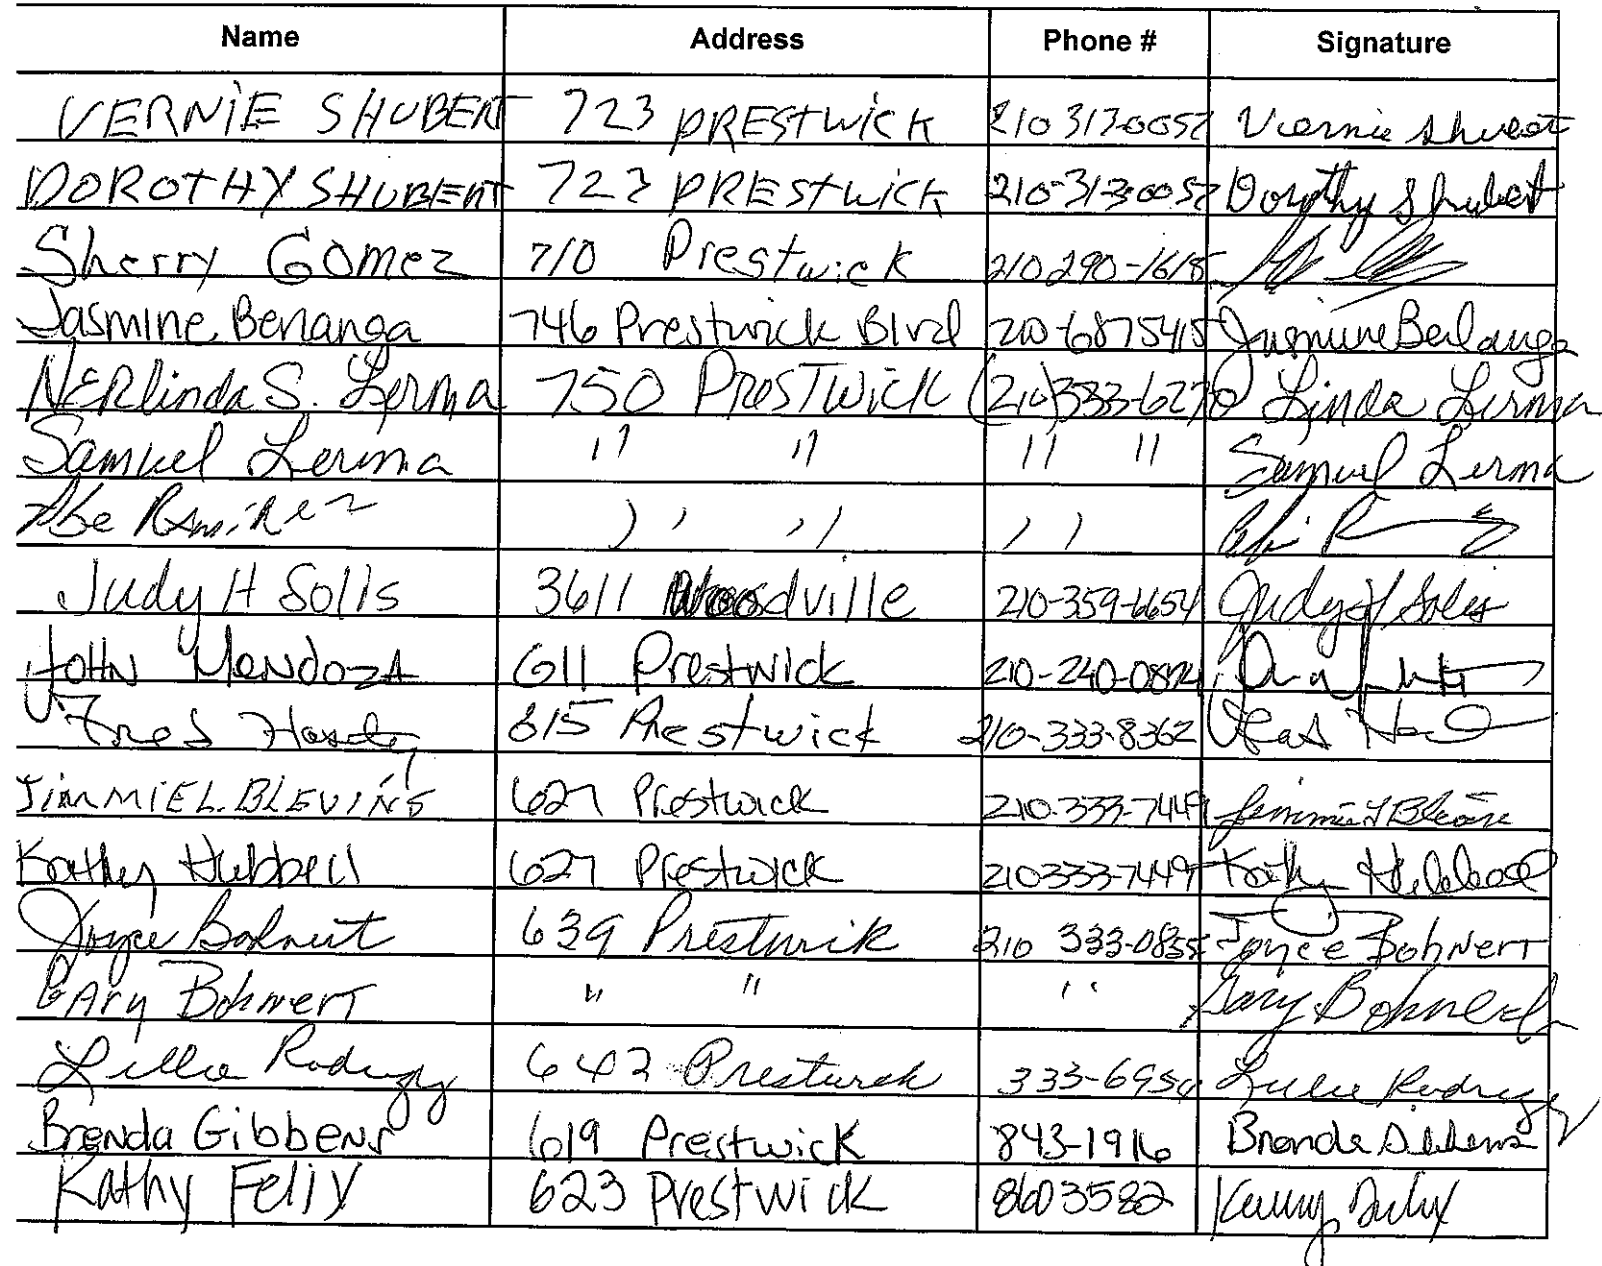 Name Address Phone # Signature
VERNIE SHUBERT 723 PRESTWICK 210 313-0057 Vernie Shubert
DOROTHY SHUBERT 723 PRESTWICK 210-313-0057 Dorothy Shubert
Sherry Gomez 710 Prestwick 210 290-1618
Jasmine Berlanga 746 Prestwick Blvd 210-6875415 Jasmine Berlanga
NERlinda S. Lerma 750 PRESTWICK (210)333-6270 Linda Lerma
Samuel Lerma " " " " Samuel Lerma
Abe Ramirez " " "
Judy H Solis 3611 Woodville 210-359-6654 Judy H Solis
JOHN MENDOZA 611 Prestwick 210-240-0874
Fred 615 Prestwick 210-333-8362
JIMMIE L. BLEVINS 627 Prestwick 210-333-7449 Jimmie L Blevins
Kathy Hubbell 627 Prestwick 210333-7449 Kathy Hubbell
Joyce Bohnert 639 Prestwick 210 333-0835 Joyce Bohnert
GARY Bohnert " " " Gary Bohnert
Lillie Rodriguez 642 Prestwick 333-6954 Lillie Rodriguez
Brenda Gibbens 619 Prestwick 843-1916 Brenda Gibbens
Kathy Felix 623 Prestwick 8603582 Felix